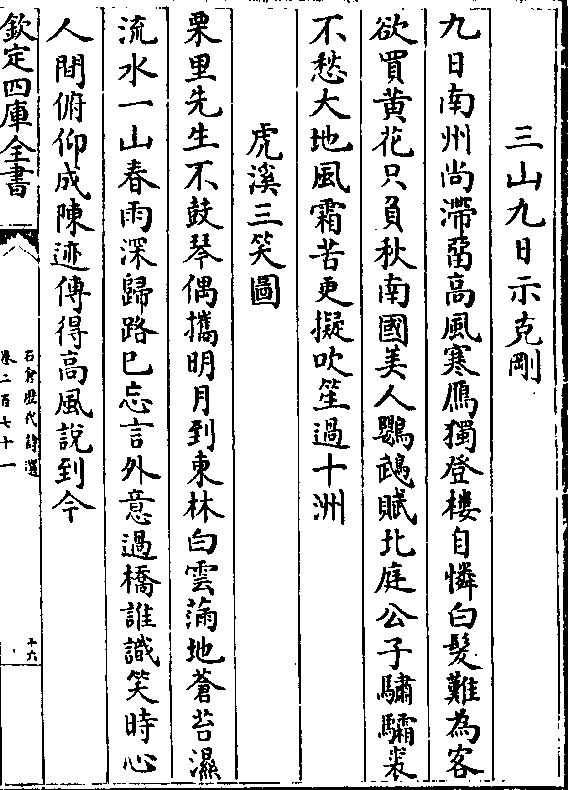 三山九日示克剛
九日南州尚滯留高風寒鴈獨登樓自憐白髮難為客
欲買黄花只負秋南國美人鸚鵡賦北庭公子驌驦裘
不愁大地風霜苦更擬吹笙過十洲
虎溪三笑圖
栗里先生不鼓琴偶攜明月到東林白雲滿地蒼苔濕
流水一山春雨深歸路已忘言外意過橋誰識笑時心
人間俯仰成陳迹傳得高風說到今
欽定四庫全書
石倉歷代詩選
卷二百七十一
十六